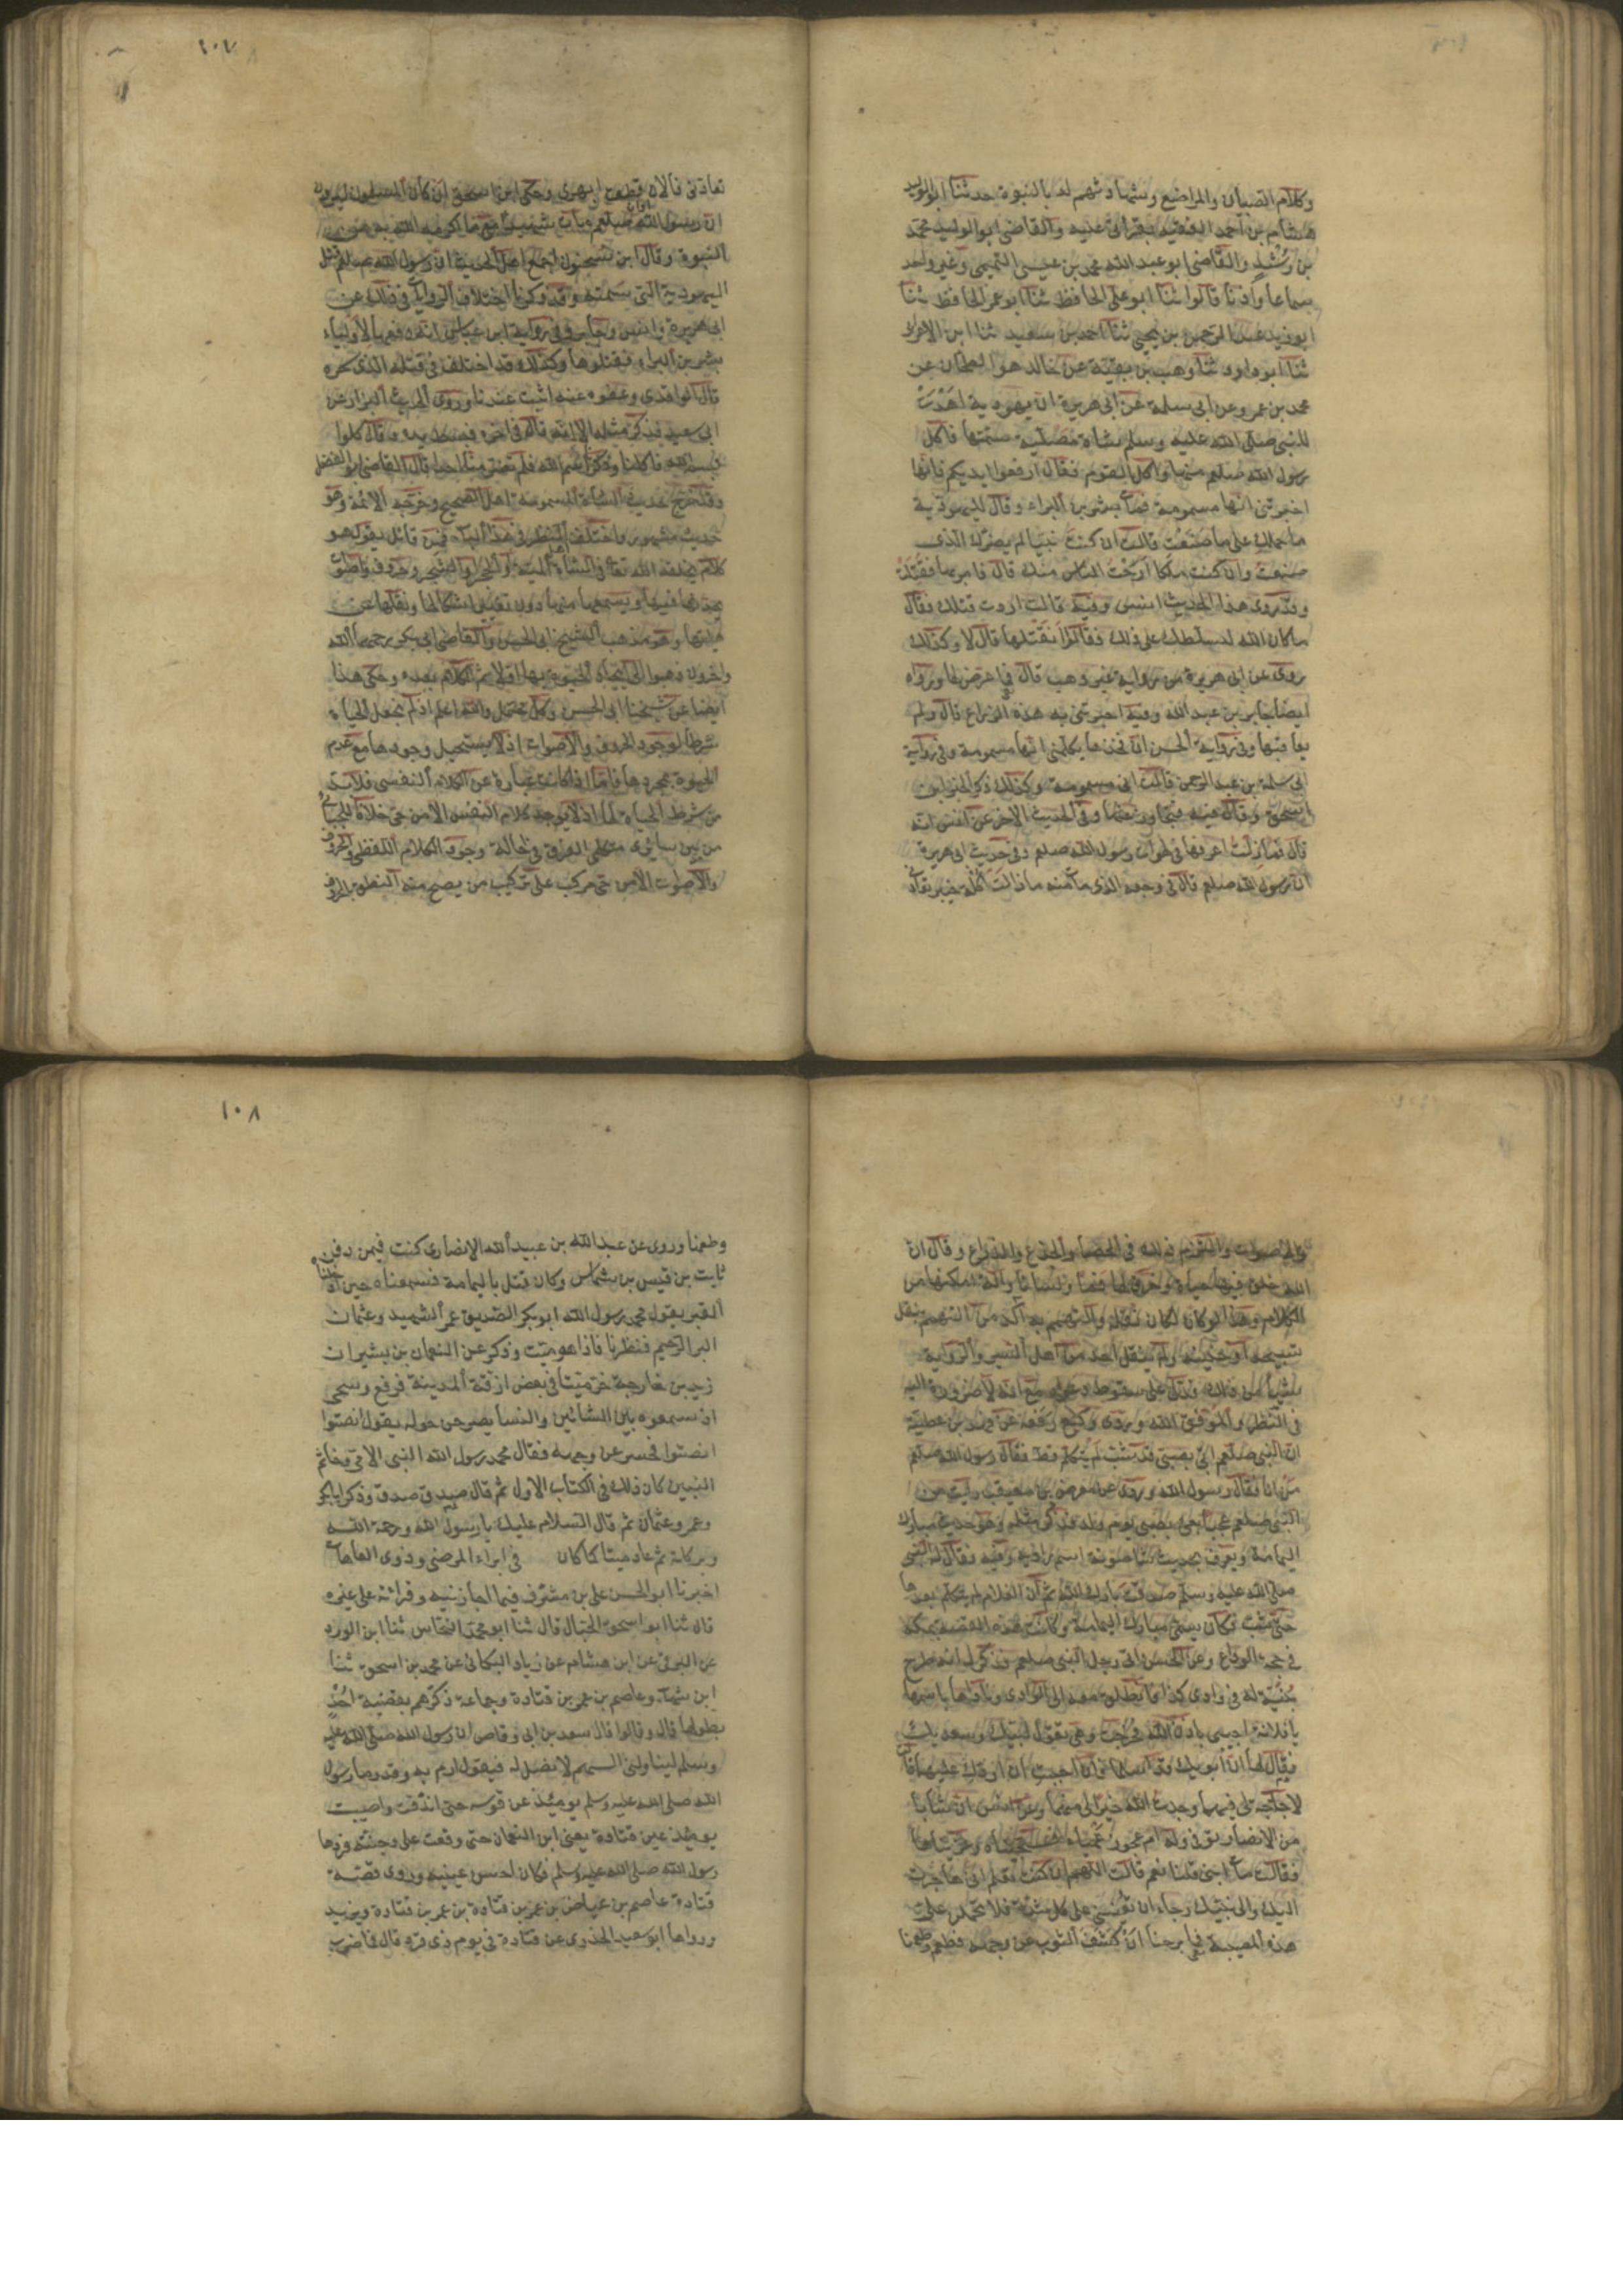 ١٠٧
وكلام الصبيان والمراضع وشهادتهم له بالنبوة حدثنا ابو الوليد
هشام بن احمد الفقيه بقرأتى عليه والقاضى ابو الوليد محمد
بن رشد والقاضى ابو عبد الله محمد بن عيسى التميمى وغير واحد
سماعا واذنا قالوا ثنا ابو على الحافظ ثنا ابو عمر الحافظ ثنا
ابو زيد عبد الرحمن بن يحيى ثنا احمد بن سعيد ثنا ابن الاعرابى
ثنا ابو داود ثنا وهب بن بقية عن خالد هو الطحان عن
محمد بن عمرو عن ابى سلمة عن ابى هريرة ان يهودية اهدت
للنبى صلى الله عليه وسلم شاة مصلية سمتها فاكل
رسول الله صلعم منها واكل القوم فقال ارفعوا ايديكم فانها
اخبرتنى انها مسمومة فمات بشر بن البراء وقال لليهودية
ما حملك على ما صنعت قالت ان كنت نبيا لم يضرك الذى
صنعت وان كنت ملكا ارحت الناس منك قال فامر بها فقتلت
وقد روى هذا الحديث انس وفيه قالت اردت قتلك فقال
ما كان الله ليسلطك على ذلك فقالوا نقتلها قال لا وكذلك
روى عن ابى هريرة من رواية غير وهب قال فما عرض لها ورواه
ايضا جابر بن عبد الله وفيه اخبرتنى به هذه الذراع قال ولم
يعاقبها وفى رواية الحسن ان فخذها يكلمنى انها مسمومة وفى رواية
ابى سلمة بن عبد الرحمن قالت انى مسمومة وكذلك ذكر الخبر ابن
اسحق وقال فيه فتجاوز عنها وفى الحديث الاخر عن انس انه
قال فما زلت اعرفها فى لهوات رسول الله صلعم وفى حديث ابى هريرة
ان رسول الله صلعم قال فى وجعه الذى مات منه ما زالت اكلة خيبر تعاد
تعادنى فالان قطعت ابهرى وحكى ابن اسحق ان كان المسلمون ليرون
ان رسول الله صلعم مات شهيدا مع ما اكرمه الله به من
النبوة وقال ابن سحنون اجمع اهل الحديث ان رسول الله صلعم قتل
اليهودية التى سمته وقد ذكرنا اختلاف الروايات فى ذلك عن
ابى هريرة وانس وجابر وفى رواية ابن عباس انه دفعها لاولياء
بشر بن البراء فقتلوها وكذلك قد اختلف فى قتله الذى سحره
قال الواقدى وعفوه عنه اثبت عندنا وروى الحديث البزار عن
ابى سعيد فذكر مثله الا انه قال فى اخره فبسط يده وقال كلوا
بسم الله فاكلنا وذكرنا اسم الله فلم تضر منا احدا قال القاضى ابو الفضل
وقد خرج حديث الشاة المسمومة اهل الصحيح وخرجه الائمة وهو
حديث مشهور واختلف ائمة النظر فى هذا الباب فمن قائل يقول هو
كلام يخلقه الله تعالى فى الشاة الميتة او الحجر او الشجر وحروف واصوات
يحدثها فيها ويسمعها منها دون تغيير اشكالها ونقلها عن
هيئتها وهو مذهب الشيخ ابى الحسن والقاضى ابى بكر رحمهما الله
واخرون ذهبوا الى ايجاد الحيوة بها اولا ثم الكلام بعده وحكى هذا
ايضا عن شيخنا ابى الحسن وكل محتمل والله اعلم اذ لم نجعل الحياة
شرطا لوجود الحروف والاصوات اذ لا يستحيل وجودها مع عدم
الحيوة بمجردها فاما اذا كانت عبارة عن الكلام النفسى فلا بد
من شرط الحياة لها اذ لا يوجد كلام النفس الا من حى خلافا للجبائى
من بين سائر متكلمى الفرق فى احالة وجود الكلام اللفظى والحروف
والاصوات الا من حى مركب على تركيب من يصح منه النطق بالحروف
١٠٨
والاصوات والتزم ذلك فى الحصا والجذع والذراع وقال ان
الله خلق فيها حياة وخرق لها فما ولسانا والة امكنها من
الكلام وهذا لو كان لكان نقله والتهمم به اكد من التهمم بنقل
تسبيحه او حنينه ولم ينقل احد من اهل السير والرواية
شيئا من ذلك فدل على سقوط دعواه مع انه لا ضرورة اليه
فى النظر والموفق الله وروى وكيع رفعه عن فهد بن عطية
ان النبى صلعم اتى بصبى قد شب لم يتكلم قط فقال رسول الله صلعم
من انا فقال رسول الله وروى عن معرض بن معيقيب رايت من
النبى صلعم عجبا جئ بصبى يوم ولد فذكر مثله وهو حديث مبارك
اليمامة ويعرف بحديث شاصونة اسم راويه وفيه فقال له النبى
صلى الله عليه وسلم صدقت بارك الله فيك ثم ان الغلام لم يتكلم بعدها
حتى شب فكان يسمى مبارك اليمامة وكانت هذه القصة بمكة
فى حجة الوداع وعن الحسن اتى رجل النبى صلعم فذكر له انه طرح
بنية له فى وادى كذا فانطلق معه الى الوادى وناداها باسمها
يا فلانة اجيبى باذن الله فخرجت وهى تقول لبيك وسعديك
فقال لها ان ابويك قد اسلما فان احببت ان اردك عليهما قالت
لا حاجة لى فيهما وجدت الله خيرا لى منهما وعن انس ان شابا
من الانصار توفى وله ام عجوز عمياء فسجيناه وعزيناها
فقالت مات ابنى قلنا نعم قالت اللهم ان كنت تعلم انى هاجرت
اليك والى نبيك رجاء ان تعيننى على كل شدة فلا تحملن على
هذه المصيبة فما برحنا ان كشف الثوب عن وجهه فطعم وطعمنا
وطعمنا وروى عن عبد الله بن عبيد الله الانصارى كنت فيمن دفن
ثابت بن قيس بن شماس وكان قتل باليمامة فسمعناه حين ادخلناه
القبر يقول محمد رسول الله ابو بكر الصديق عمر الشهيد وعثمان
البر الرحيم فنظرنا فاذا هو ميت وذكر عن النعمان بن بشير ان
زيد بن خارجة خر ميتا فى بعض ازقة المدينة فرفع وسجى
اذ سمعوه بين العشائين والنسأ يصرخن حوله يقول انصتوا
انصتوا فحسر عن وجهه فقال محمد رسول الله النبى الامى وخاتم
النبيين كان ذلك فى الكتاب الاول ثم قال صدق صدق وذكر ابا بكر
وعمر وعثمان ثم قال السلام عليك يا رسول الله ورحمة الله
وبركاته ثم عاد ميتا كما كان فى ابراء المرضى وذوى العاهات
اخبرنا ابو الحسن على بن مشرف فيما اجازنيه وقراته على غيره
قال ثنا ابو اسحق الحبال قال ثنا ابو محمد النحاس ثنا ابن الورد
عن البرقى عن ابن هشام عن زياد البكائى عن محمد بن اسحق ثنا
ابن شهاب وعاصم بن عمر بن قتادة وجماعة ذكرهم بقضية احد
بطولها قال وقالوا قال سعد بن ابى وقاص ان رسول الله صلى الله عليه
وسلم ليناولنى السهم لا نصل له فيقول ارم به وقد رمى رسول
الله صلى الله عليه وسلم يومئذ عن قوسه حتى اندقت واصيبت
يومئذ عين قتادة يعنى ابن النعمان حتى وقعت على وجنته فردها
رسول الله صلى الله عليه وسلم فكان احسن عينيه وروى قصة
قتادة عاصم بن عياض بن عمر بن قتادة بن عمر بن قتادة ويزيد
ورواها ابو سعيد الخدرى عن قتادة فى يوم ذى قرد قال فما ضرب